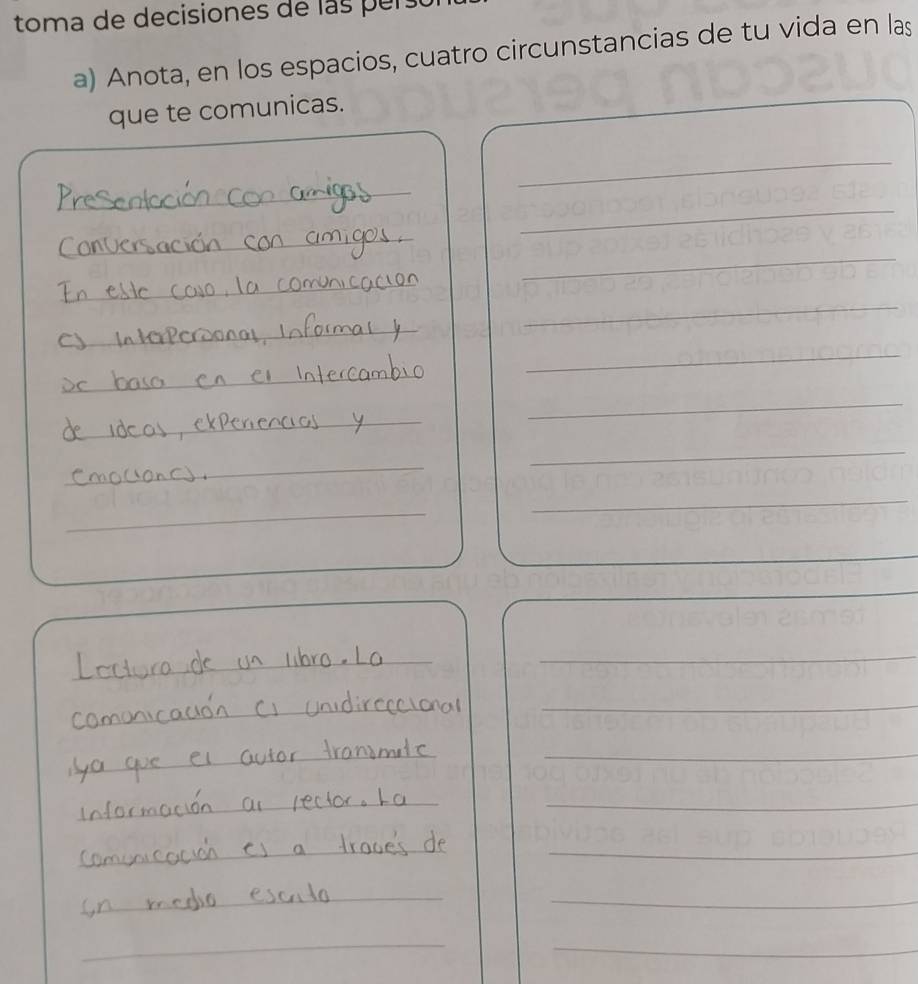 toma de decisiones de las
a) Anota, en los espacios, cuatro circunstancias de tu vida en las
que te comunicas.
Presentación con amigos
Conversación con amigos.
En este caso, la comunicacion
es interpersonal, informal y
se basa en el intercambio
de ideas, experiencias y
emociones.
Lectura de un libro. La
comunicación es unidireccional
ya que el autor transmite
información al lector. La
comunicación es a través de
un medio escrito